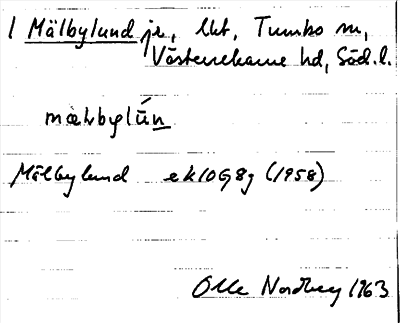 1 Mälbylund je, lht, Tumbo sn,
Västerrekarne hd, Söd.l.
Mälbylund ek10G8g (1958)
Olle Nordberg 1963